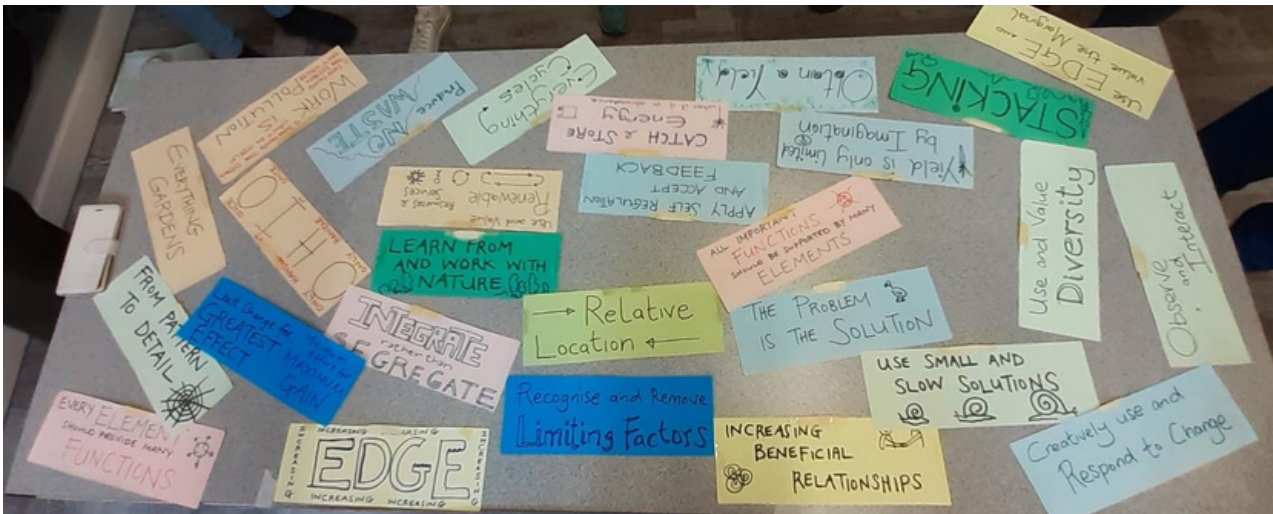 WORK IS
POLLUTION
Produce NO
WASTE
Everything
Cycles
CATCH & STORE
Energy
Obtain a Yield
STACKING
USE EDGE AND
Value the Marginal
EVERYTHING
GARDENS
OHIO
Use and Value
Renewable
Resources &
Services
APPLY SELF REGULATION
AND ACCEPT
FEEDBACK
Yield is only limited
by Imagination
Use and Value
Diversity
Observe
and
Interact
LEARN FROM
AND WORK WITH
NATURE
ALL IMPORTANT
FUNCTIONS
SHOULD BE SUPPORTED BY MANY
ELEMENTS
FROM PATTERN
TO DETAIL
Least Change for
GREATEST
EFFECT
Minimum
Effort for
MAXIMUM
GAIN
INTEGRATE
rather than
SEGREGATE
Relative
Location
THE PROBLEM
IS THE SOLUTION
USE SMALL AND
SLOW SOLUTIONS
EVERY ELEMENT
SHOULD PROVIDE MANY
FUNCTIONS
INCREASING
EDGE
INCREASING INCREASING
INCREASING
INCREASING
Recognise and Remove
Limiting Factors
INCREASING
BENEFICIAL
RELATIONSHIPS
Creatively use and
Respond to Change